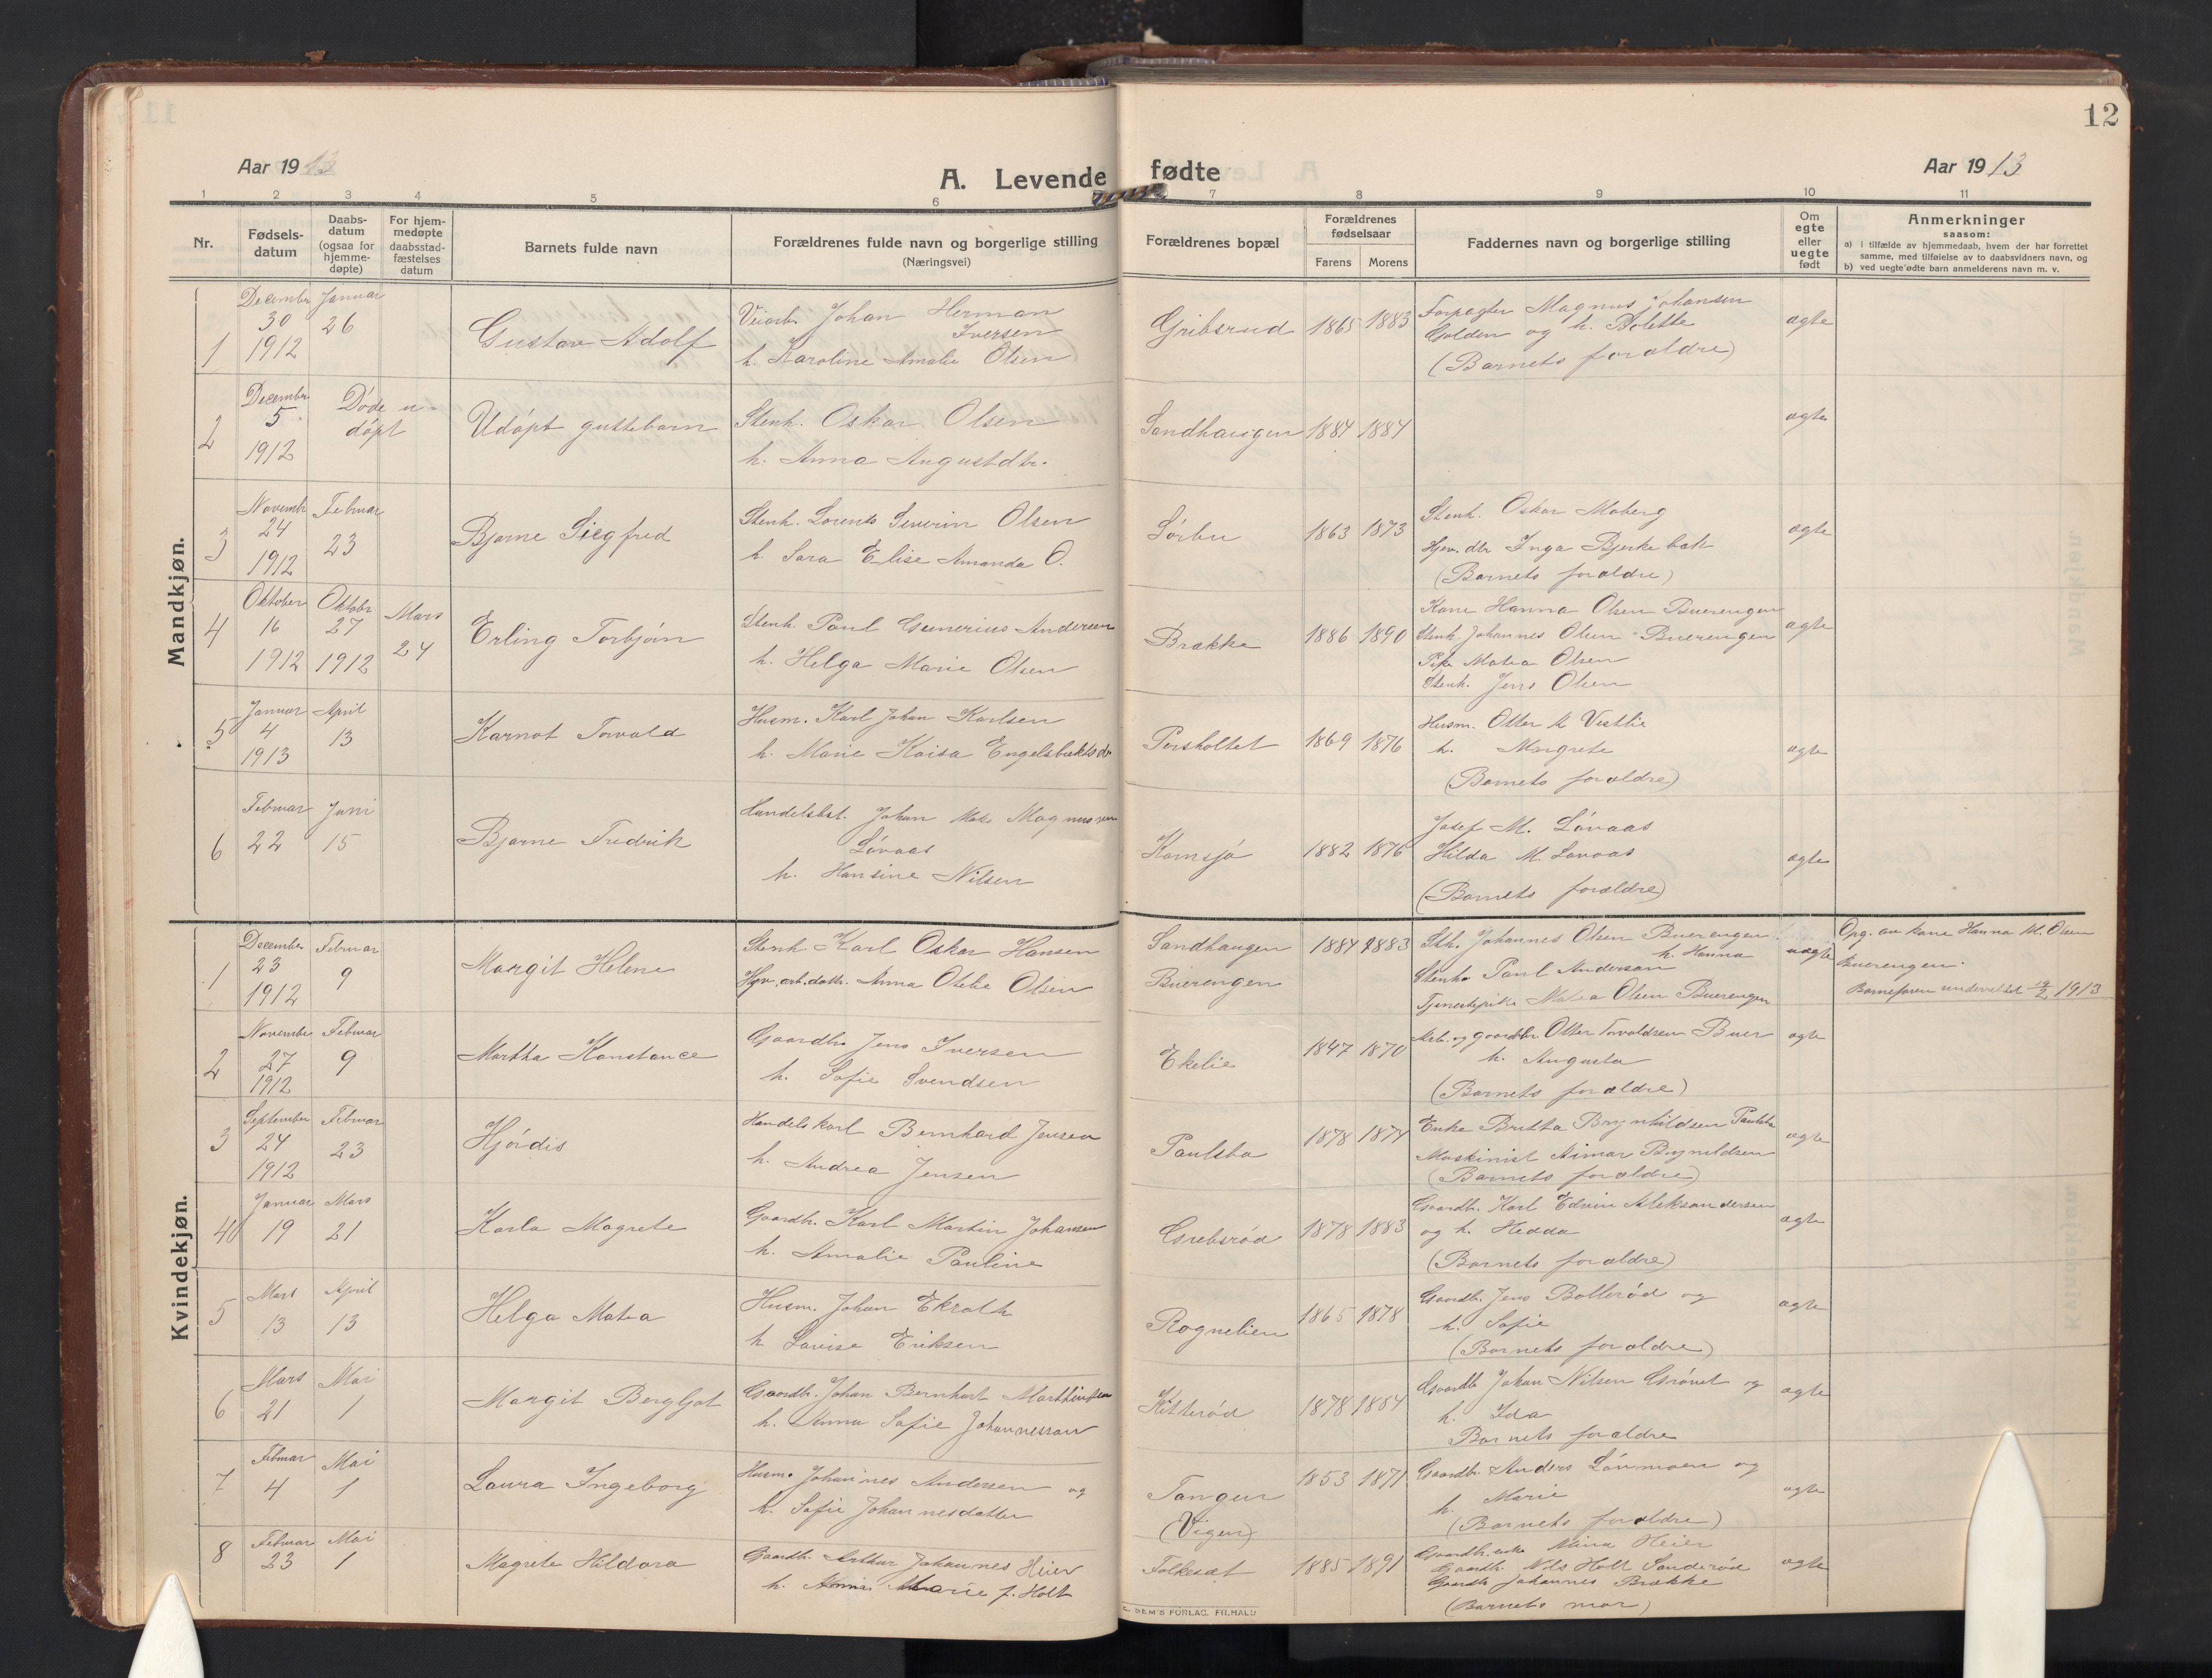 12
Aar 1913
A. Levende fødte
Aar 1913
1 2 3 4 5 6 7 8 9 10 11
Nr.
Fødsels-
datum
Daabs-
datum
(ogsaa for
hjemme-
døpte)
For hjem-
medøpte
daabsstad-
fæstelses
datum
Barnets fulde navn
Forældrenes fulde navn og borgerlige stilling
(Næringsvei)
Forældrenes bopæl
Forældrenes
fødselsaar
Farens Morens
Faddernes navn og borgerlige stilling
Om
egte
eller
uegte
født
Anmerkninger
saasom:
a) i tilfælde av hjemmedaab, hvem der har forrettet
samme, med tilføielse av to daabsvidners navn, og
b) ved uegte fødte barn anmelderens navn m. v.
Mandkjøn.
1
December
30
1912
Januar
26
Gustav Adolf
Veiarb. Johan Herman
Iversen
h. Karoline Amalie Olsen
Gribsrud
1865 1883
Forpagter Magnus Johansen
Golden og h. Bolette
(Barnets forældre)
ægte
2
December
5
1912
Døde u-
døpt
Udøpt guttebarn
Stenh. Oskar Olsen
h. Anna Augustdtr.
Sandhaugen
1884 1884
ægte
3
Novembr
24
1912
Februar
23
Bjarne Siegfred
Stenh. Lorents Severin Olsen
h. Sara Elise Amanda O.
Sørbu
1863 1873
Stenh. Oskar Moberg
Hjem. dtr Inga Bjerkebæk
(Barnets forældre)
ægte
4
Oktober
16
1912
Oktobr
27
1912
Mars
24
Erling Torbjørn
Stenh. Paul Gunerius Andersen
h. Helga Marie Olsen
Brække
1886 1890
Kone Hanna Olsen Buerengen
Stenh. Johannes Olsen Buerengen
Pike Matea Olsen
Stenh. Jens Olsen
ægte
5
Januar
4
1913
April
13
Karnot Torvald
Husm. Karl Johan Karlsen
h. Marie Kaisa Engelsbrektsdr
Persholtet
1869 1876
Husm. Otter K Vestlie
h. Margrete
(Barnets forældre)
ægte
6
Februar
22
Juni
15
Bjarne Fredrik
Handelsbst. Johan Magnussen
Løvaas
h. Hansine Nilsen
Kornsjø
1882 1876
Josef M. Løvaas
Hilda M. Løvaas
(Barnets forældre)
ægte
Kvindekjøn.
1
December
23
1912
Februar
9
Margit Helene
Stenh. Karl Oskar Hansen
Hjv. arb. dattr. Anna Otelie Olsen
Sandhaugen
Buerengen
1884 1883
Sth. Johannes Olsen Buerengen
h. Hanna
Stenh. Paul Andersen
Tjenestepike Matea Olsen Buerengen
uægte
Opg. av kone Hanna M. Olsen
Buerengen.
Barnefaren underrettet 12/2 1913
2
Novembr
27
1912
Februar
9
Martha Konstance
Gaardbr. Jens Iversen
h. Sofie Svendsen
Ekelie
1847 1870
Arb. og gaardbr Otter Torvaldsen Buer
h. Augusta
(Barnets forældre)
ægte
3
September
24
1912
Februar
23
Hjørdis
Handelskarl Bernhard Jensen
h. Andrea Jensen
Paulsbo
1878 1874
Enke Britta Brynhildsen Paulsbo
Maskinist Aimar Brynildsen
(Barnets forældre)
ægte
4
Januar
19
Mars
21
Karla Magrete
Gaardbr. Karl Martin Johansen
h. Amalie Pauline
Grebsrød
1878 1883
Gaardbr. Karl Edvin Aleksandersen
og h. Hedda
(Barnets forældre)
ægte
5
Mars
13
April
13
Helga Matea
Husm. Johan Ekroth
h Lovise Eriksen
Rognelien
1865 1878
Gaardbr. Jens Bollerød og
h. Sofie
(Barnets forældre)
ægte
6
Mars
21
Mai
1
Margit Bergljot
Gaardbr. Johan Bernhart Marthinsen
h. Anna Sofie Johannessen
Kitterød
1878 1884
Gaardbr Johan Nilsen Grønet og
h. Ida
Barnets forældre
ægte
7
Februar
4
Mai
1
Laura Ingeborg
Husm. Johannes Andersen og
h. Sofie Johannesdatter
Tangen
(Vigen)
1853 1871
Gaardbr. Anders Lønmoen og
h. Marie
(Barnets forældre)
ægte
8
Februar
23
Mai
1
Magrete Hildora
Gaardbr. Arthur Johannes Heier
h. Marie f. Holt
Folkesæt
1885 1891
Gaardbr. enke Mina Heier
Gaardbr. Nils Holt Sanderød
Gaardbr Johannes Brække
(Barnets mor)
ægte
SEM'S FORLAG. FR.HALD